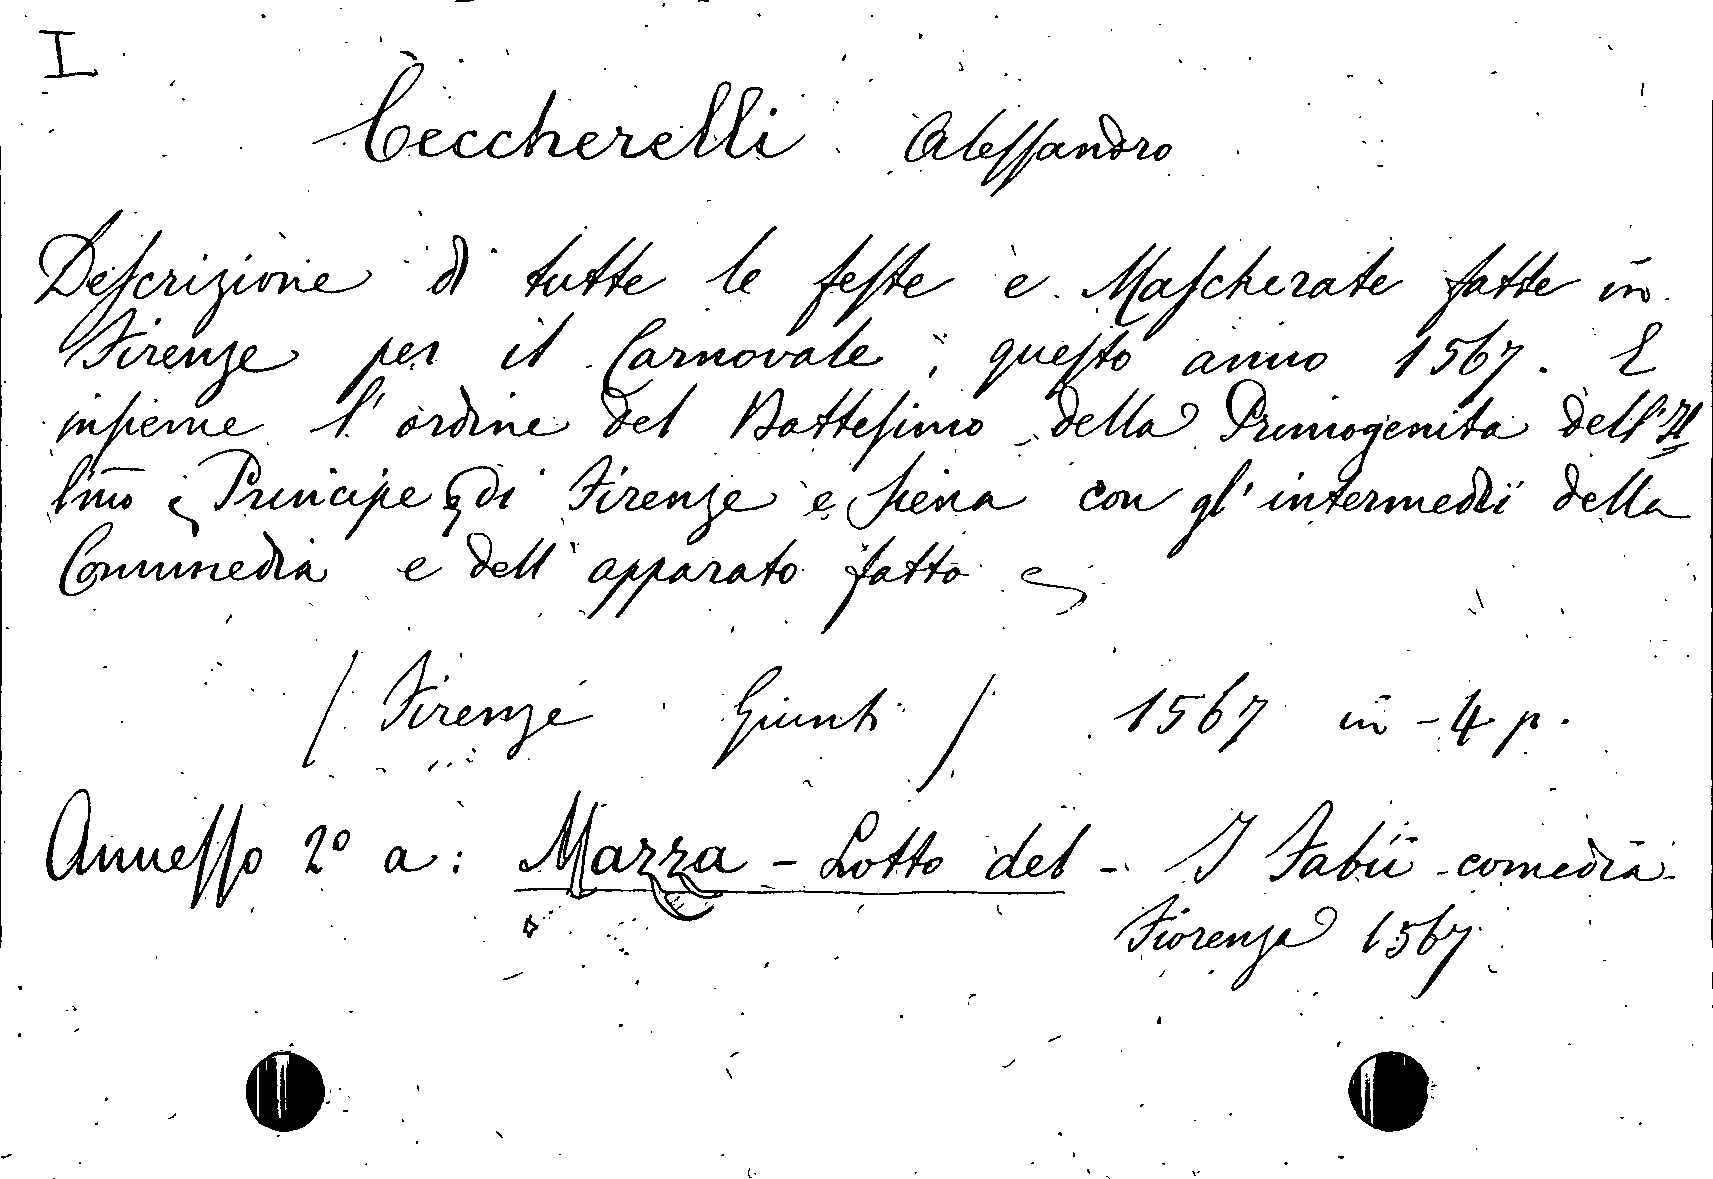 I
Ceccherelli Alessandro
Descrizione di tutte le feste e Mascherate fatte in
Firenze per il Carnovale, questo anno 1567. E
insieme l'ordine del Battesimo della Primogenita dell'Il
lmo Principe di Firenze e Siena con gl'intermedii della
Commedia e dell'apparato fatto
/ Firenze Giunti / 1567 in-4 p.
Annesso 2º a: Mazza - Lotto del - I Fabii comedia
Fiorenza 1567